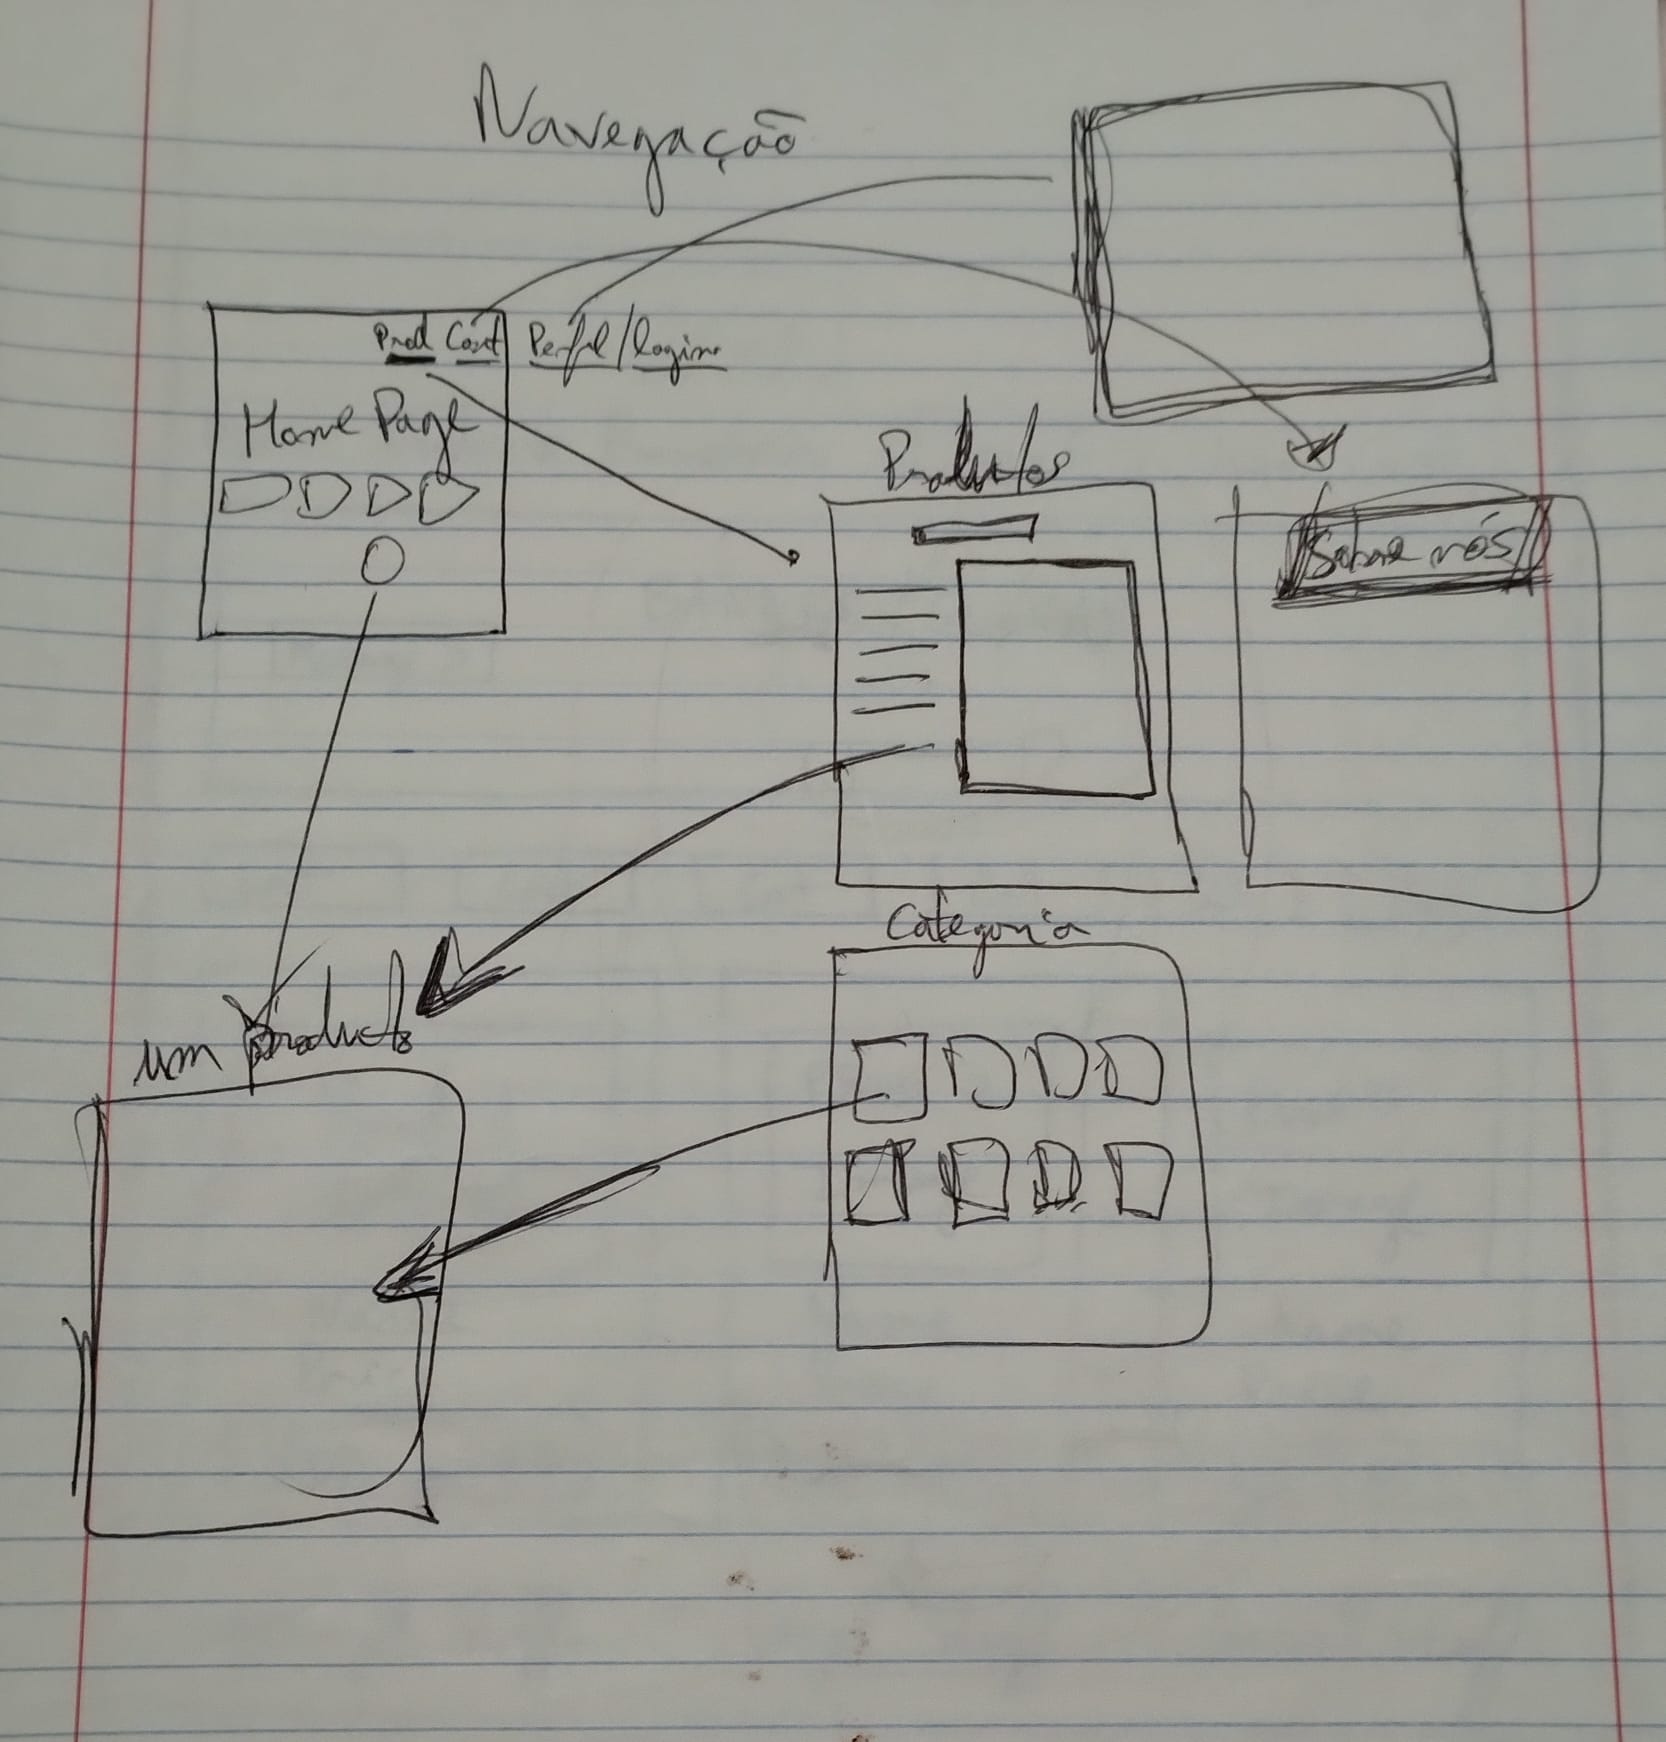 Navegação
Prod Cont Perfil/login
Home Page
Productos
Sobre nós
Categoria
um producto